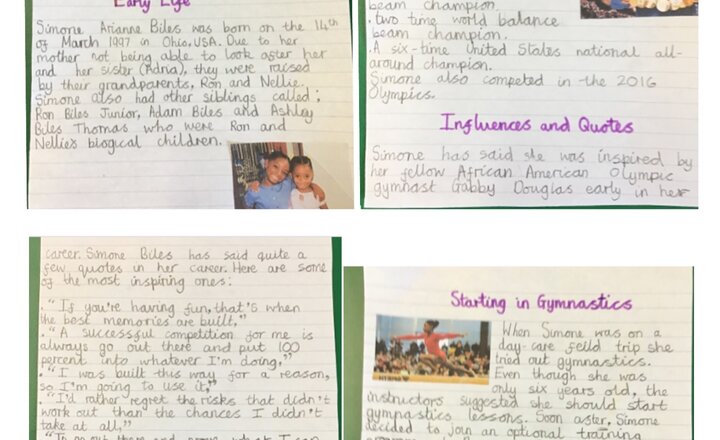 Early Life
Simone Arianne Biles was born on the 14th
of March 1997 in Ohio, USA. Due to her
mother not being able to look after her
and her sister (Adria), they were raised
by their grandparents, Ron and Nellie.
Simone also had other siblings called;
Ron Biles Junior, Adam Biles and Ashley
Biles Thomas who were Ron and
Nellies biogical children.
beam champion.
. two time world balance
beam champion.
. A six-time United States national all-
around champion.
Simone also competed in the 2016
Olympics.
Influences and Quotes
Simone has said she was inspired by
her fellow African American Olympic
gymnast Gabby Douglas early in her
career. Simone Biles has said quite a
few quotes in her career. Here are some
of the most inspiring ones:
. "If you're having fun, that's when
the best memories are built."
. "A successful competition for me is
always go out there and put 100
percent into whatever I'm doing."
. "I was built this way for a reason,
so I'm going to use it."
. "I'd rather regret the risks that didn't
work out than the chances I didn't
take at all."
. "To go out there and prove what I can
Starting in Gymnastics
When Simone was on a
day-care feild trip she
tried out gymnastics.
Even though she was
only six years old, the
instructors suggested she should start
gymnastics lessons. Soon after, Simone
decided to join an optional training